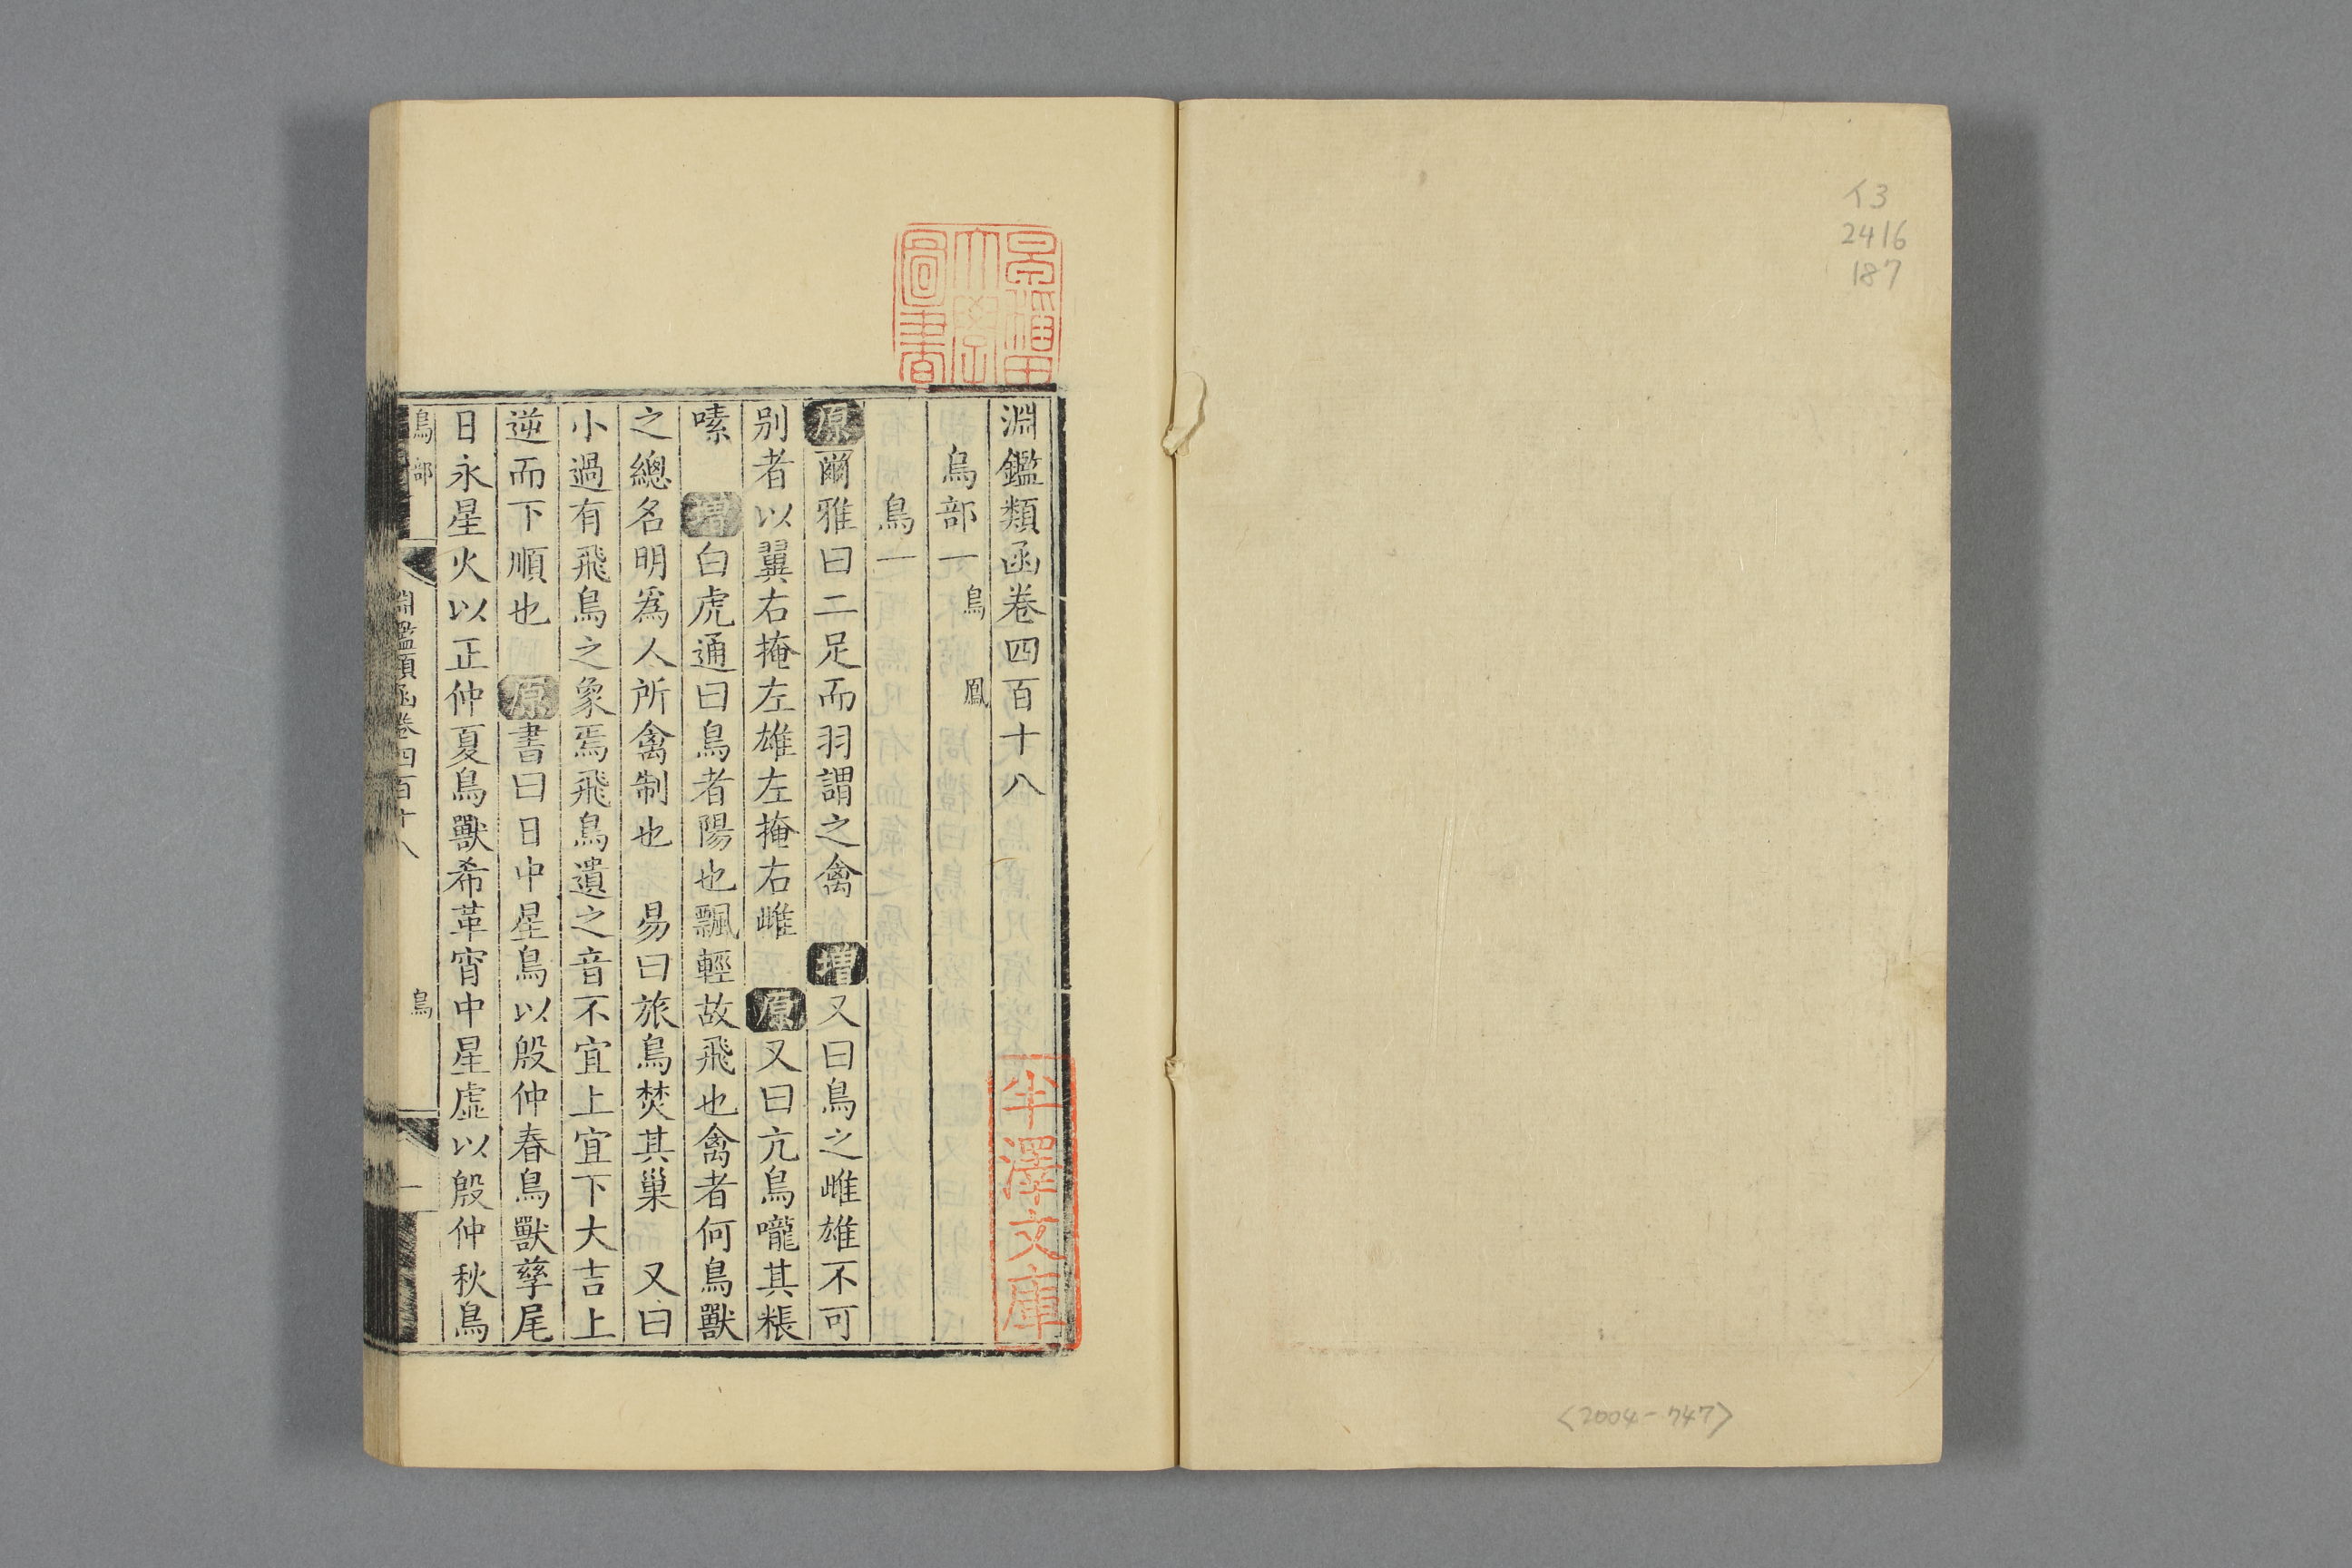 イ3
2416
187
〈2004-747〉
早稲田
大學
圖書
淵鑑類函卷四百十八
鳥部一 鳥 鳳
鳥一
原爾雅曰二足而羽謂之禽 增又曰鳥之雌雄不可
别者以翼右掩左雄左掩右雌 原又曰亢鳥嚨其粻
嗉 增白虎通曰鳥者陽也飄輕故飛也禽者何鳥獸
之總名明爲人所禽制也 易曰旅鳥焚其巢 又曰
小過有飛鳥之象焉飛鳥遺之音不宜上宜下大吉上
逆而下順也 原書曰日中星鳥以殷仲春鳥獸孳尾
日永星火以正仲夏鳥獸希革宵中星虛以殷仲秋鳥
鳥部 淵鑑類函卷四百十八 鳥 一
半澤文庫